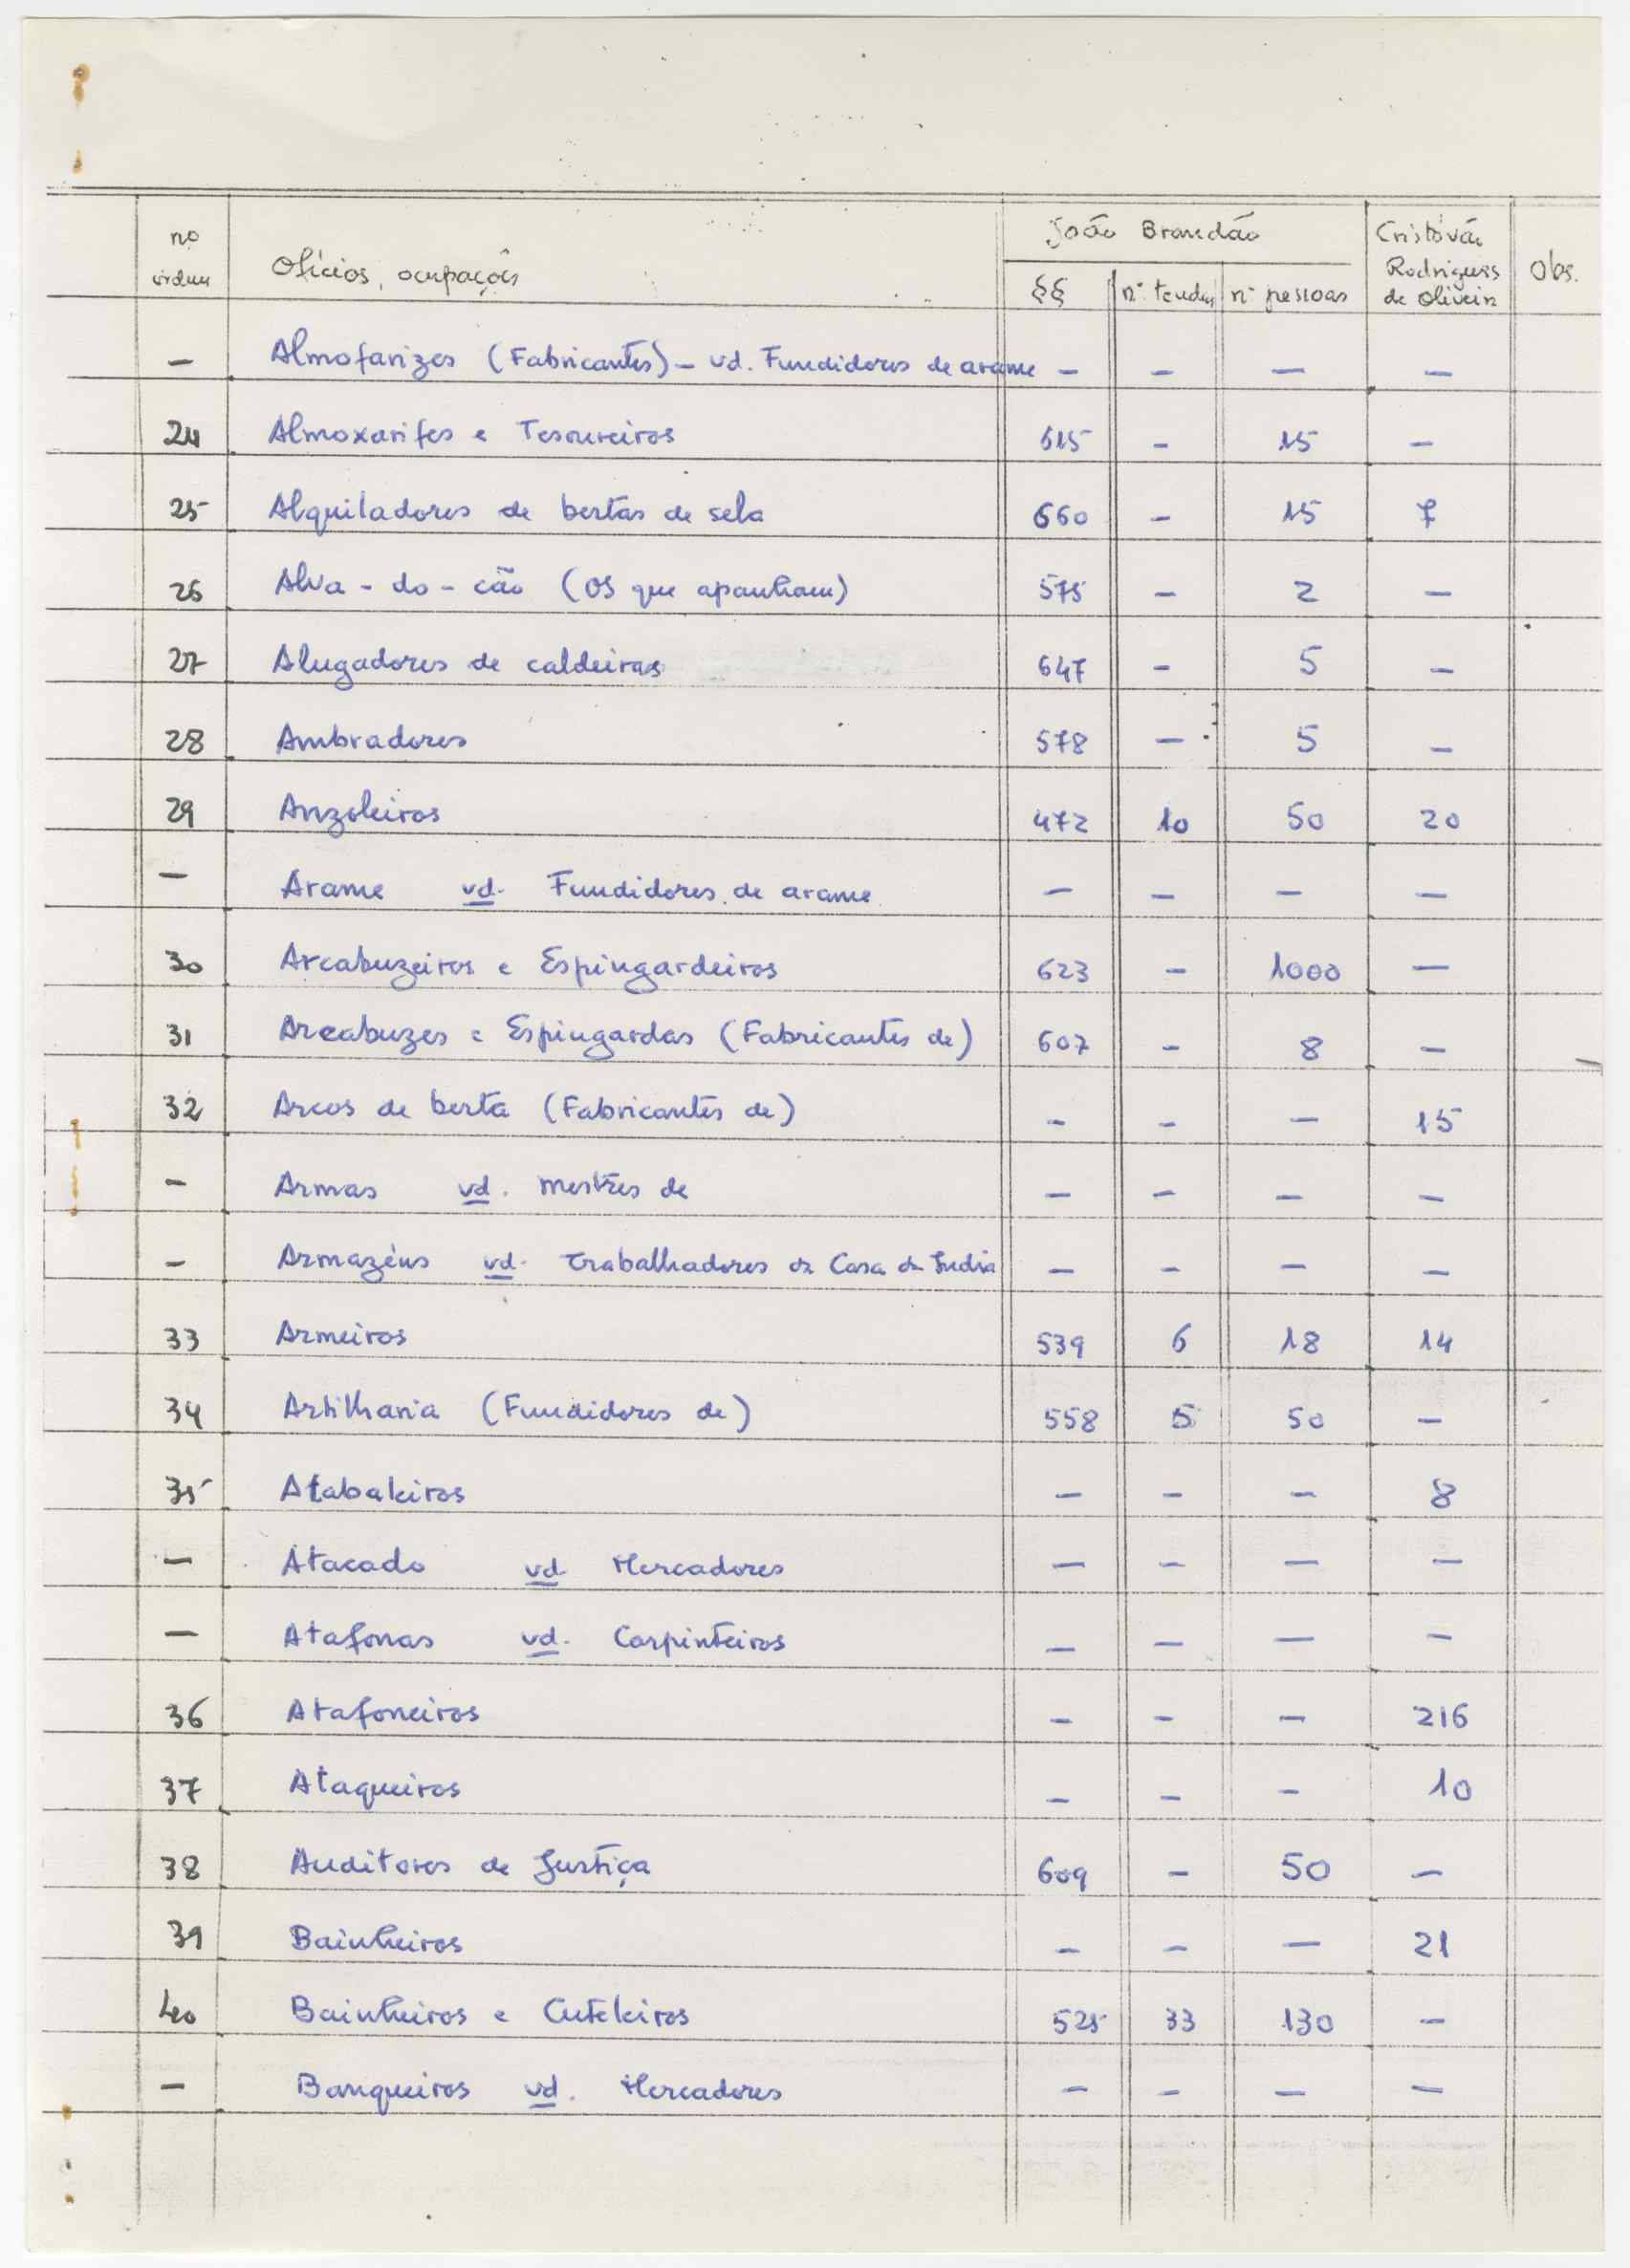 nº ordem
Ofícios, ocupações
João Brandão
§§
nº tendas
nº pessoas
Cristóvão
Rodrigues
de Oliveira
Obs.
— Almofarizes (Fabricantes) — vd. Fundidores de arame — — — —
24 Almoxarifes e Tesoureiros 615 — 15 —
25 Alquiladores de bestas de sela 660 — 15 7
26 Alva-do-cão (os que apanham) 575 — 2 —
27 Alugadores de caldeiras 647 — 5 —
28 Ambradores 578 — 5 —
29 Anzoleiros 472 10 50 20
— Arame vd. Fundidores de arame — — — —
30 Arcabuzeiros e Espingardeiros 623 — 1000 —
31 Arcabuzes e Espingardas (Fabricantes de) 607 — 8 —
32 Arcos de besta (Fabricantes de) — — — 15
— Armas vd. mestres de — — — —
— Armazéns vd. Trabalhadores da Casa da Índia — — — —
33 Armeiros 539 6 18 14
34 Artilharia (Fundidores de) 558 5 50 —
35 Atabaleiros — — — 8
— Atacado vd. Mercadores — — — —
— Atafonas vd. Carpinteiros — — — —
36 Atafoneiros — — — 216
37 Ataqueiros — — — 10
38 Auditores de Justiça 609 — 50 —
39 Bainheiros — — — 21
40 Bainheiros e Cuteleiros 525 33 130 —
— Banqueiros vd. Mercadores — — — —